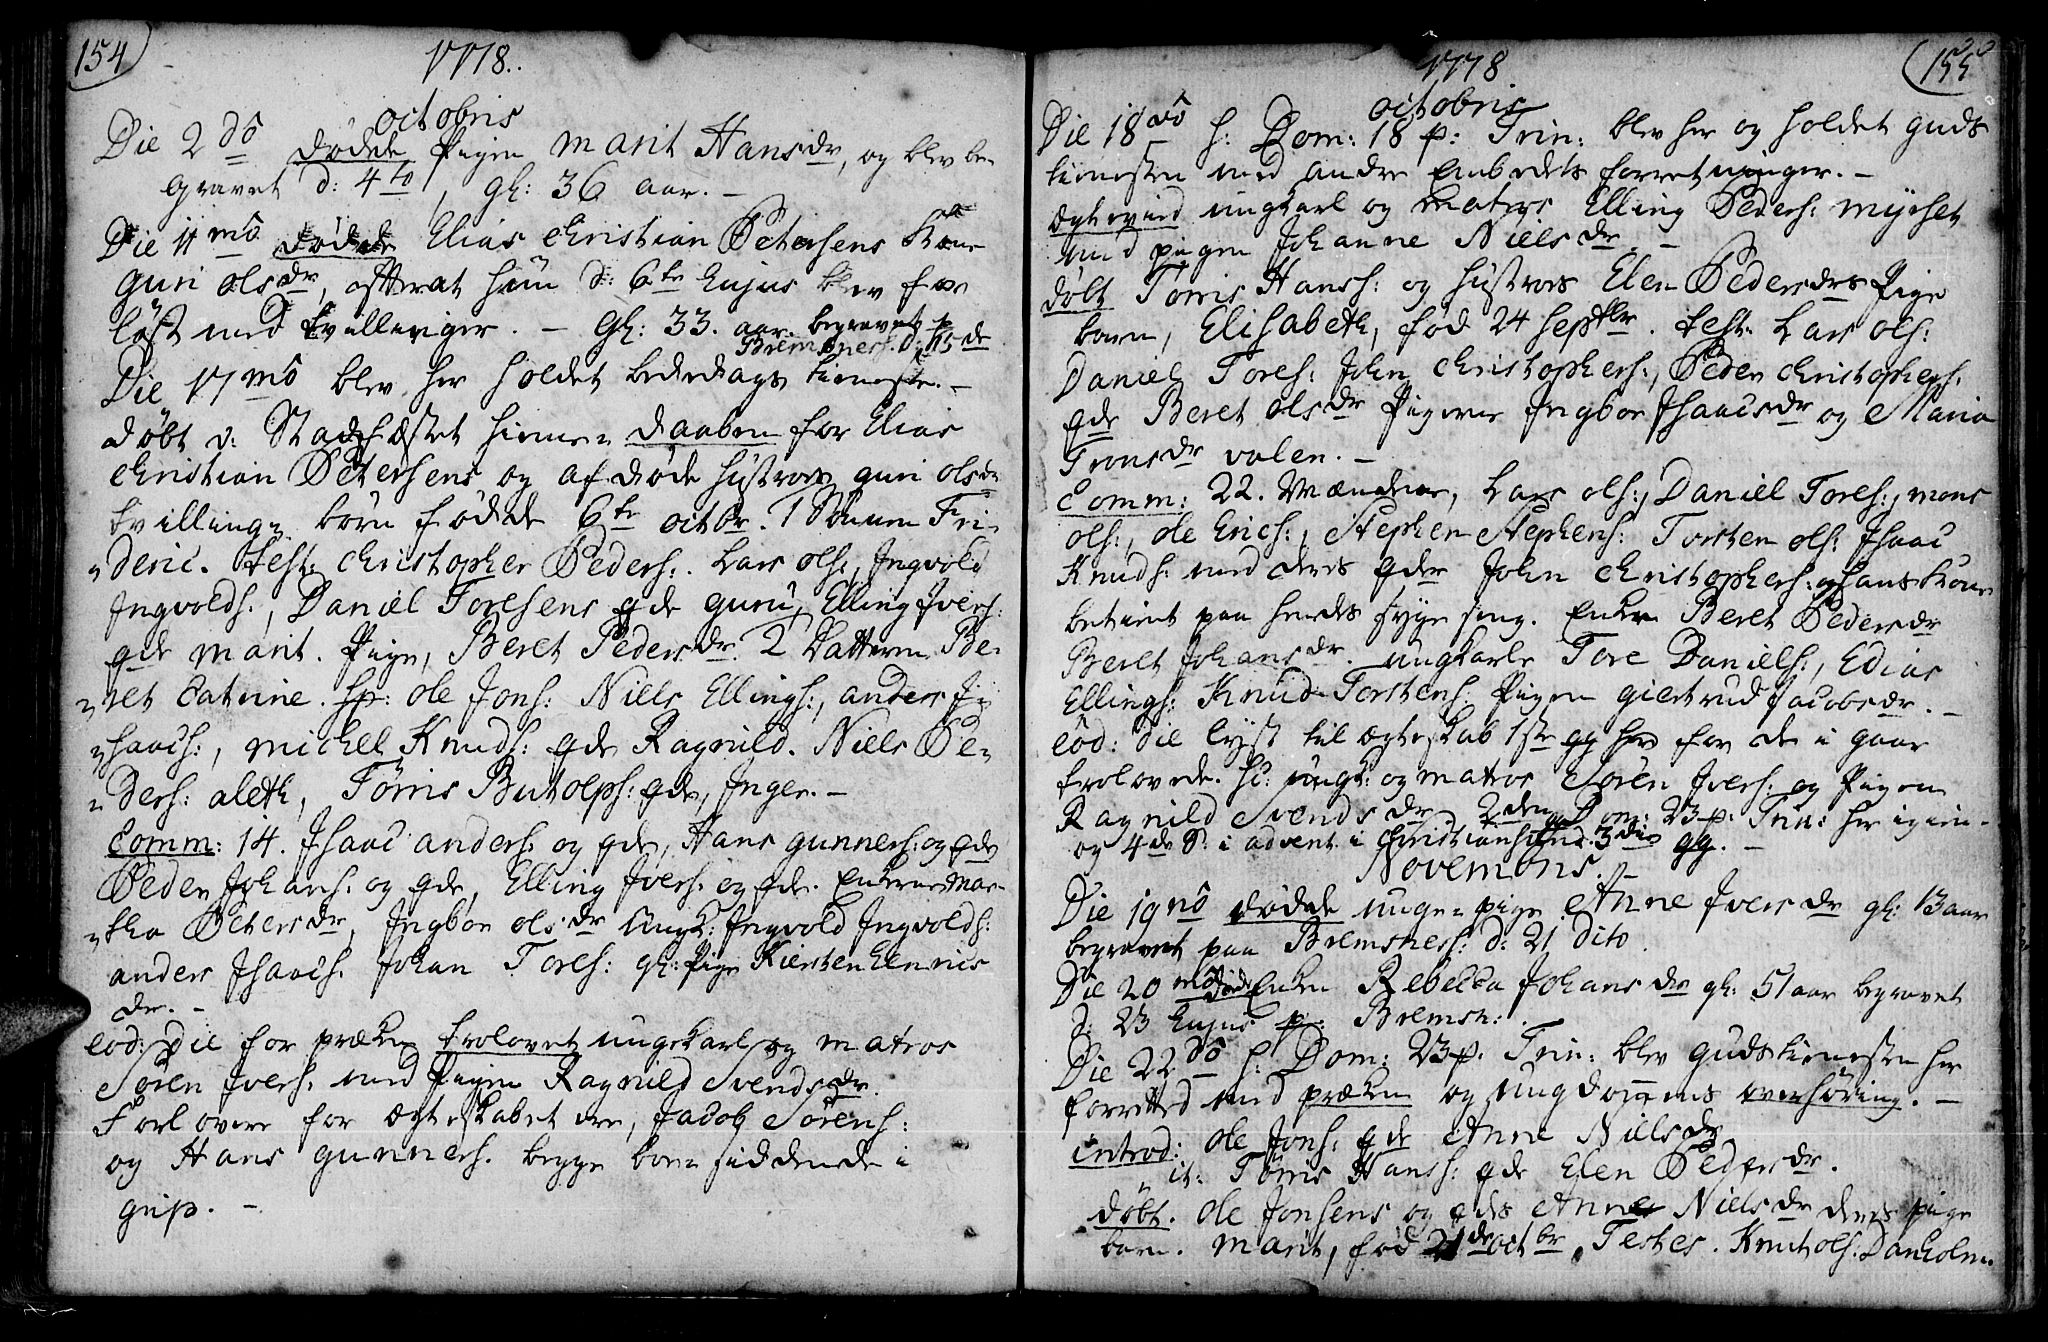 154
1778.
octobris
Die 2do døde Pigen Marit Hansdr, og blev be-
gravet d: 4to, gl: 36 aar. -
Die 11mo døde Elias Christian Petersens Kone
Guri olsdr, efterat hun d: 6te hujus blev for
løst med tvillinger. - gl: 33. aar. begravet p
Bremsnes. d: 15de
Die 17mo blev her holdet bededags tieneste. -
døbt v: Stadfæstet hieme= daaben for Elias
Christian Petersens og afdøde hustroes guri olsdr
tvilling= børn fødde 6te octbr. 1 Sønnen Fri-
=deric. test: Christopher Peders:. Lars ols:, Ingvold
Ingvolds:, Daniel Toresens qde guru, Elling Ivers:
qde marit. Pige, Beret Pedersdr. 2 Datteren Be-
=ret Catrine. Sp: ole Jons: Niels Ellings:, anders I-
=saacs:, michel Knuds: qde Ragnild. Niels Pe-
=ders: aleth, Tørris Butolphs: qde, Inger. -
Comm: 14. Isaac anders: og qde, Hans gunners: og qde
Peder Johans: og qde, Elling Ivers: og qde. Enkerne Mar-
=tha Petersdr, Ingbor olsdr Ungk: Ingvold Ingvolds:
anders Isaacs. Johan Tores: gl: Pige Kiersten Henrics
dr. -
eod: die for præken trolovet ungekarl og matros
Søren Ivers: med Pigen Ragnild Svendsdr.
Forlovere for ægteskabet ere, Jacob Sørens:
og Hans gunners. begge boesiddende i
grip. -
155
1778
octobris
Die 18vo h: Dom: 18 p: Trin: blev her og holdet guds
tienesten med andre Embedets forretninger. -
Egteviid ungkarl og matros Elling Peders: Myrset
med pigen Johanne Nielsdr. -
døbt Tørris Hans: og hustroes Elen Pedersdrs Pige
barn, Elisabeth, fød 24 septbr. test: Lars ols:
Daniel Tores: John Christophers:, Peder Christophers:
qde Beret olsdr Pigerne Ingbor Isaacsdr og Maria
Tronsdr valen. -
Comm: 22. Mændene, Lars ols:, Daniel Tores:, mons
ols:, ole Erics:, Stephen Stephens: Torsten ols: Isaac
Knuds: med deres qder John Christophers: og hans Kone
betient paa hendes syge seng. Enken Beret Pedersdr
Beret Johansdr. ungkarle Tore Daniels:, Edias
Ellings: Knud Torstens. Pigen giertrud Jacobsdr. -
eod: die lyst til ægteskab 1ste gg her for de i gaar
trolovede. sc: ungk: og matros Søren Ivers: og Pigen
Ragnild Svendsdr 2den Dom: 23 p: Trin: her igien-
og 4de S: i advent i Christiansund. 3die gg. -
Novembris. -
Die 19no døde unge= pige Anne Iversdr gl: 13 aar
begravet paa Bremsnes: d: 21 dito.
Die 20mo døde Enken Rebecca Johansdr gl: 51 aar begravet
d: 23 hujus p: Bremsn:.
Die 22do h: Dom: 23 p. Trin: blev gudstienesten her
forrettet med præken og ungdommens overhøring. -
introd: ole Jons: qde Anne Nielsdr
it: Tørris Hans: qde Elen Pedersdr.
døbt. ole Jonsens og qdes Anne Nielsdr deres pige
barn. Marit, fød 21de octbr. Testes. Knut ols: Danholm.